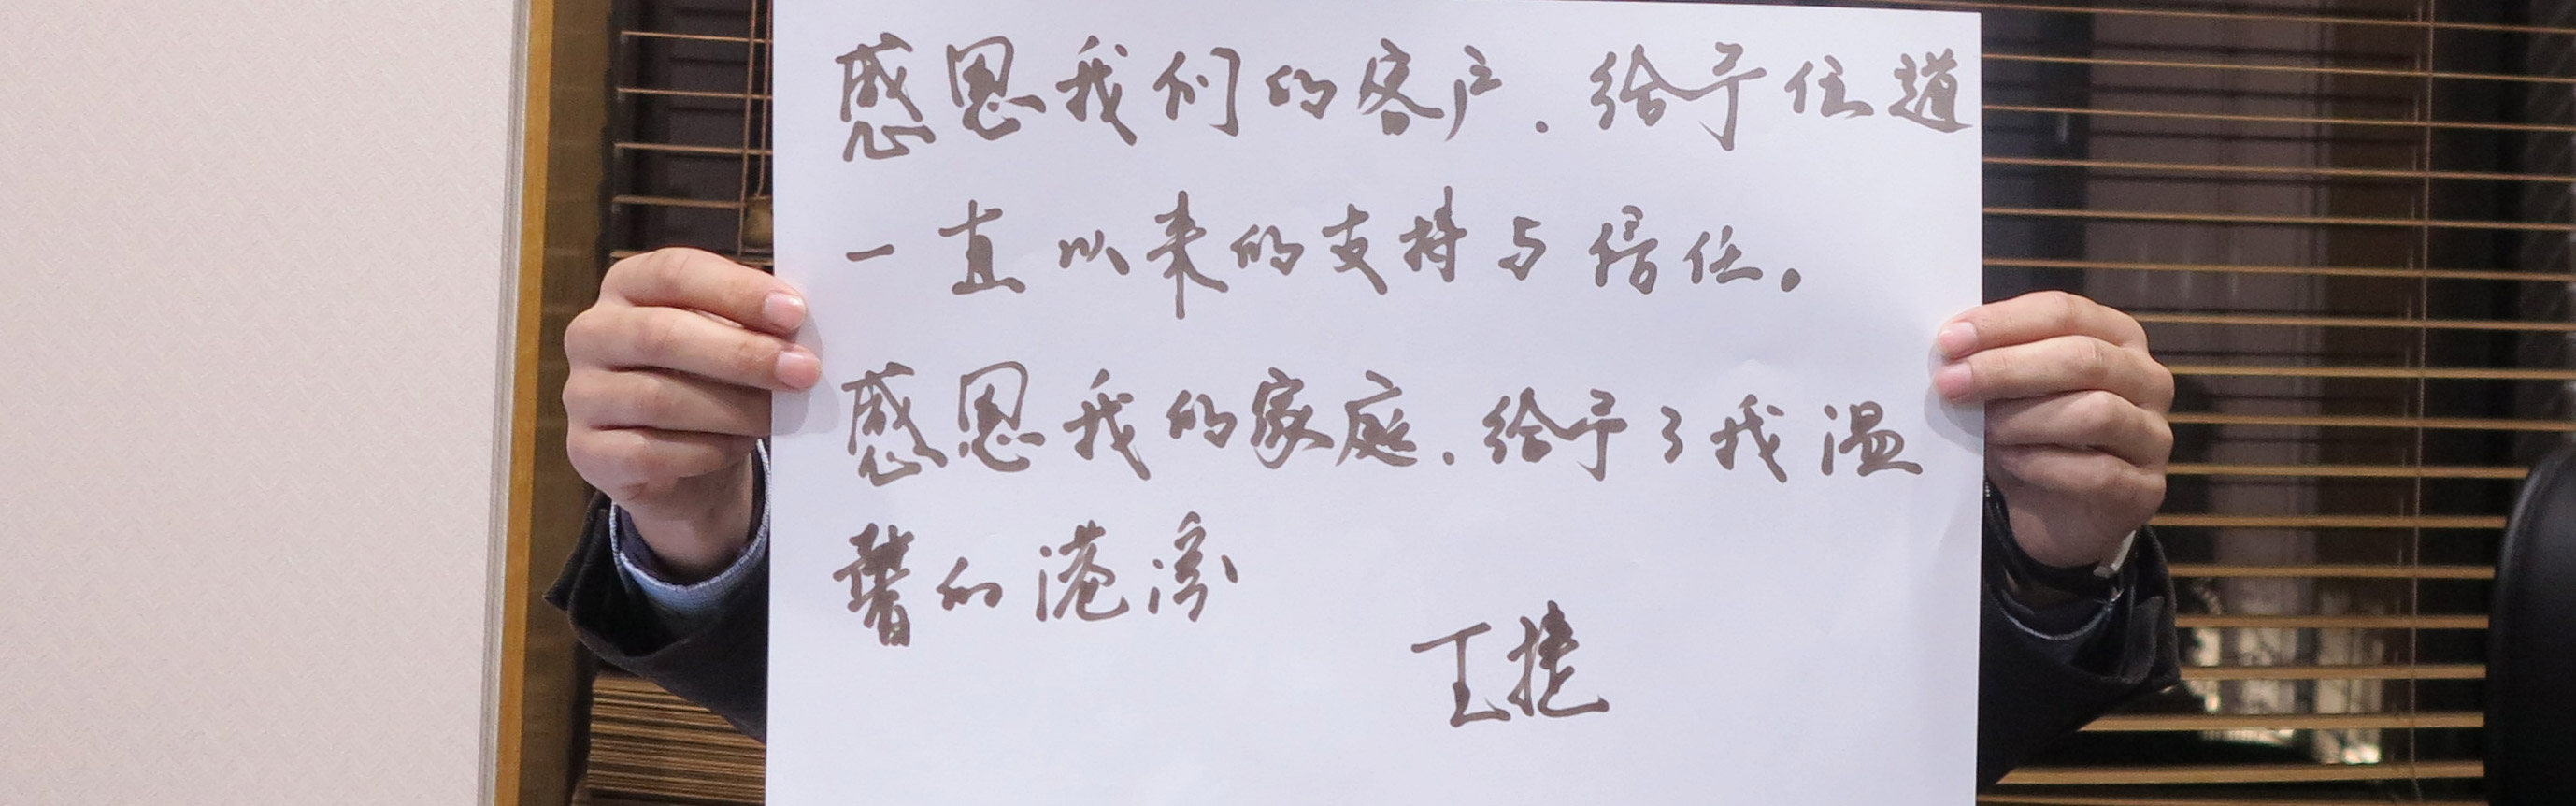 感恩我们的客户.给予住道
一直以来的支持与信任。
感恩我的家庭.给予了我温
馨的港湾
王捷